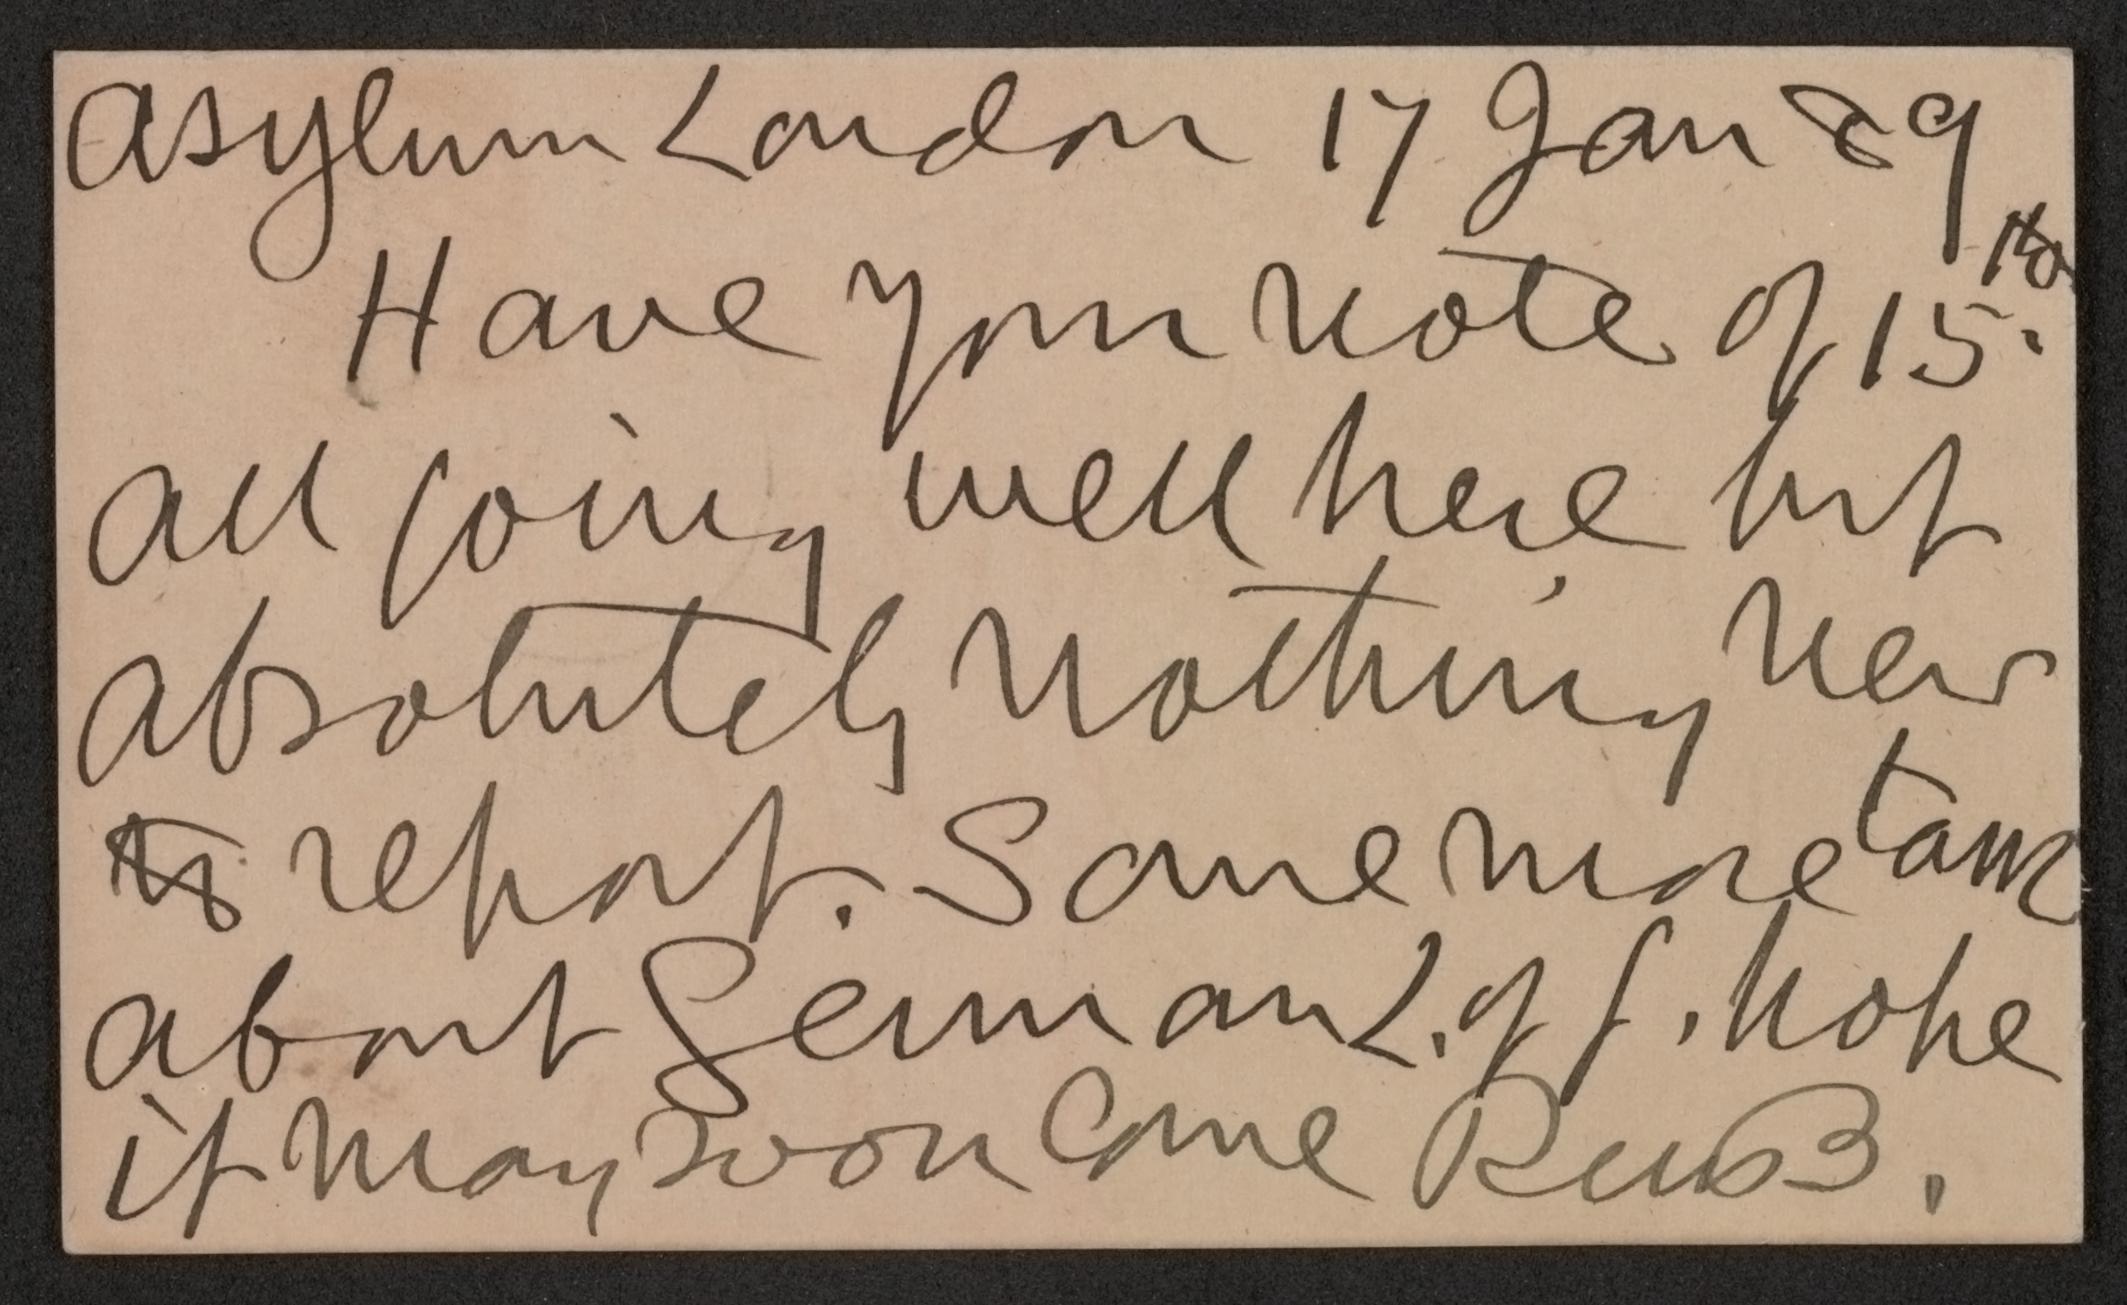 Asylum London 17 Jan 89
Have your note of 15th.
all going well here but
absolutely nothing new
to report. Some more talk
about German L. of G. hope
it may soon come RMB.